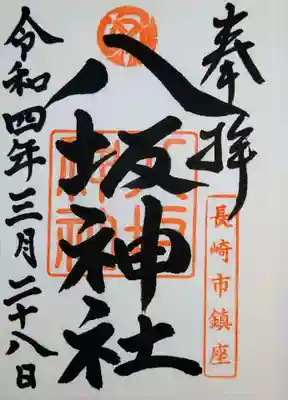 奉拝
長崎市鎮座
八坂神社
八坂神社
令和四年三月二十八日